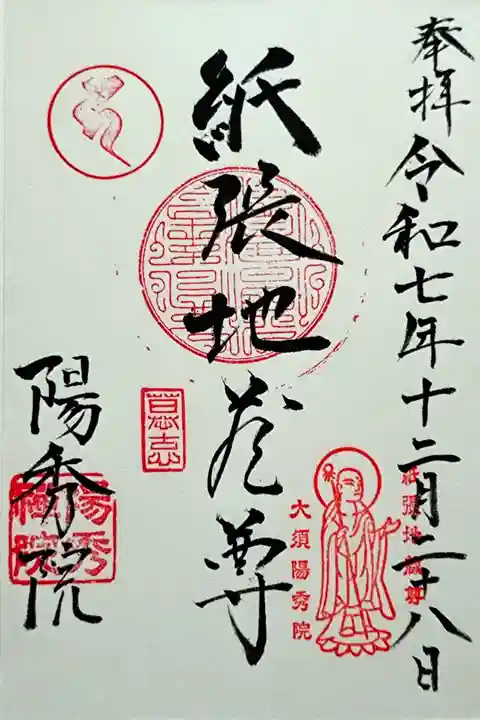 奉拝 令和七年十二月二十八日
紙張地蔵尊
大須陽秀院
紙張地蔵尊
陽秀院
陽秀禅院